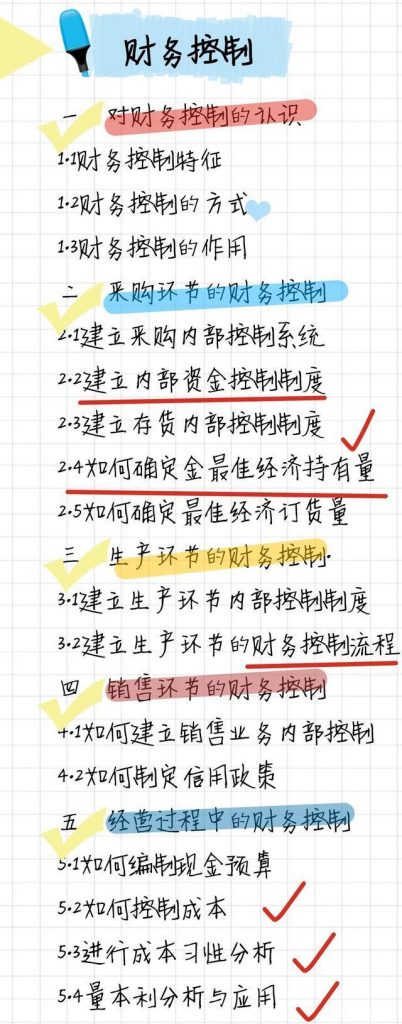 财务控制
一 对财务控制的认识
1.1财务控制特征
1.2财务控制的方式
1.3财务控制的作用
二 采购环节的财务控制
2.1建立采购内部控制系统
2.2建立内部资金控制制度
2.3建立存货内部控制制度
2.4如何确定金最佳经济持有量
2.5如何确定最佳经济订货量
三 生产环节的财务控制.
3.1建立生产环节内部控制制度
3.2建立生产环节的财务控制流程
四 销售环节的财务控制
4.1如何建立销售业务内部控制
4.2如何制定信用政策
五 经营过程中的财务控制
5.1如何编制现金预算
5.2如何控制成本
5.3进行成本习性分析
5.4量本利分析与应用